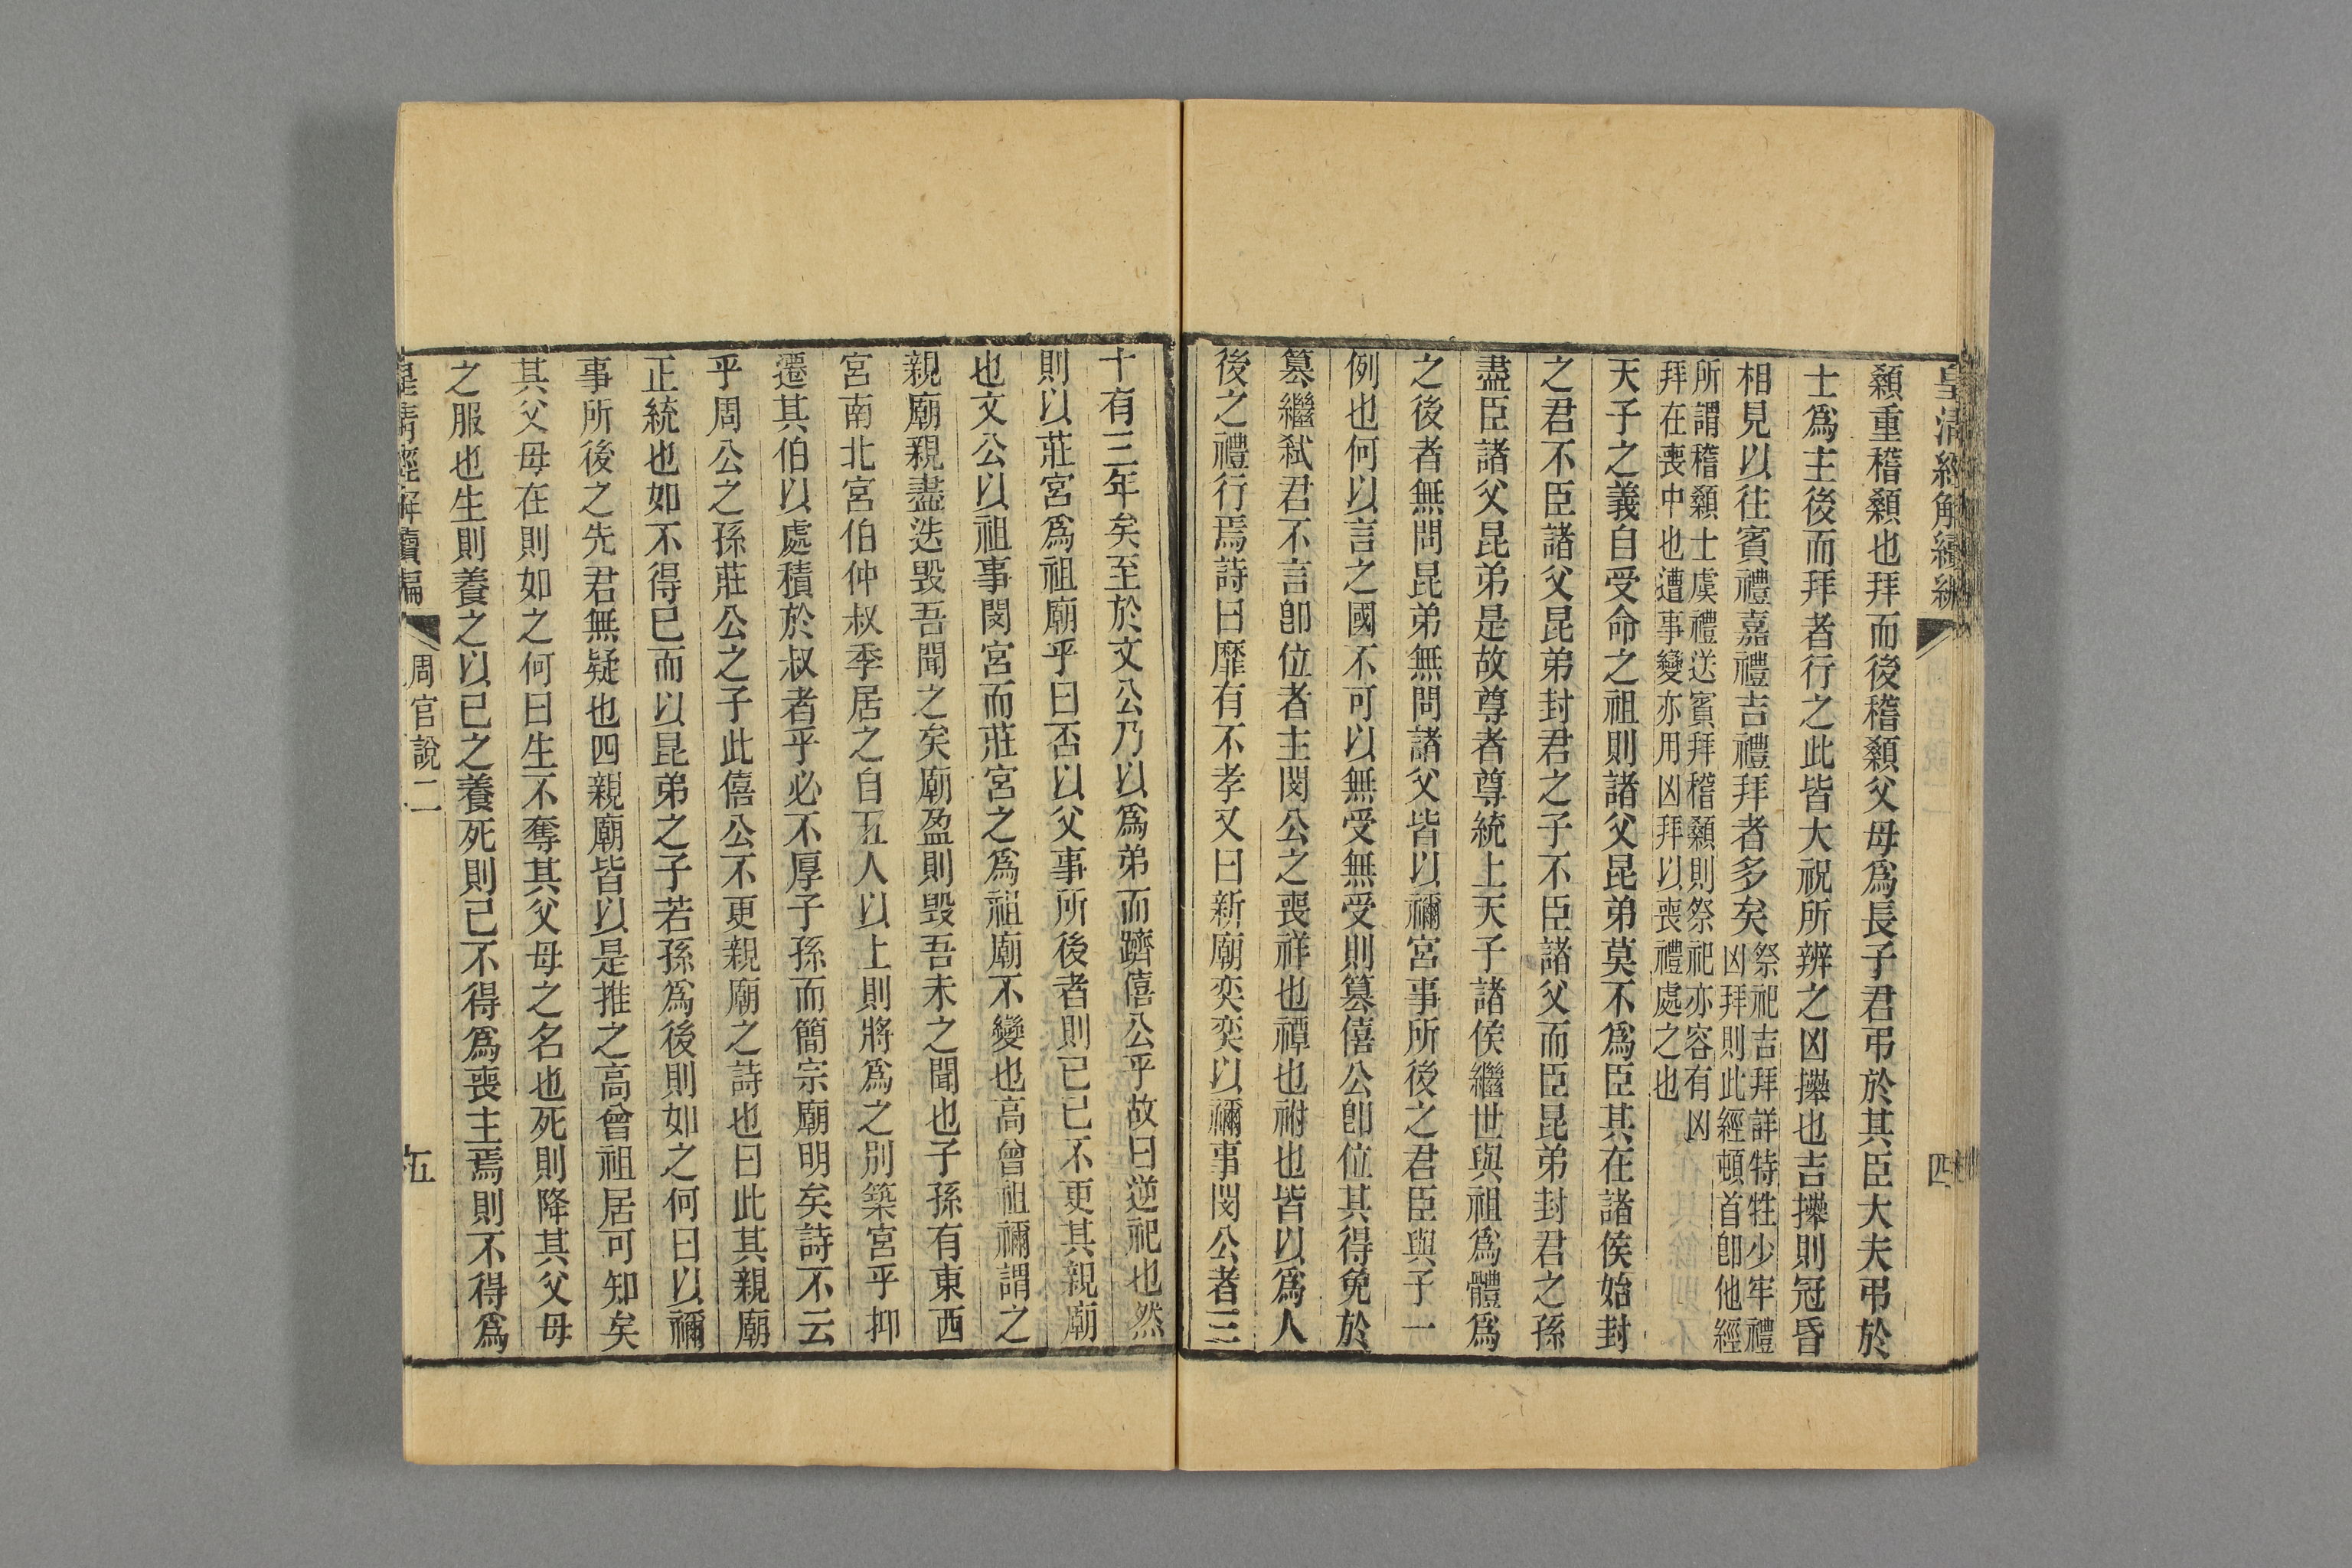 皇清經解續編
四
顙重稽顙也拜而後稽顙父母爲長子君弔於其臣大夫弔於
士爲主後而拜者行之此皆大祝所辨之凶㩰也吉㩰則冠昏
相見以往賓禮嘉禮吉禮拜者多矣祭祀吉拜詳特牲少牢禮
凶拜則此經頓首卽他經
所謂稽顙士虞禮送賓拜稽顙則祭祀亦容有凶
拜在喪中也遭事變亦用凶拜以喪禮處之也
天子之義自受命之祖則諸父昆弟莫不爲臣其在諸侯始封
之君不臣諸父昆弟封君之子不臣諸父而臣昆弟封君之孫
盡臣諸父昆弟是故尊者尊統上天子諸侯繼世與祖爲體爲
之後者無問昆弟無問諸父皆以禰宮事所後之君臣與子一
例也何以言之國不可以無受無受則篡僖公卽位其得免於
篡繼弒君不言卽位者主閔公之喪祥也禫也祔也皆以爲人
後之禮行焉詩曰靡有不孝又曰新廟奕奕以禰事閔公者三
十有三年矣至於文公乃以爲弟而躋僖公乎故曰逆祀也然
則以莊宮爲祖廟乎曰否以父事所後者則已已不更其親廟
也文公以祖事閔宮而莊宮之爲祖廟不變也高曾祖禰謂之
親廟親盡迭毀吾聞之矣廟盈則毀吾未之聞也子孫有東西
宮南北宮伯仲叔季居之自五人以上則將爲之別築宮乎抑
遷其伯以處積於叔者乎必不厚子孫而簡宗廟明矣詩不云
乎周公之孫莊公之子此僖公不更親廟之詩也曰此其親廟
正統也如不得已而以昆弟之子若孫爲後則如之何曰以禰
事所後之先君無疑也四親廟皆以是推之高曾祖居可知矣
其父母在則如之何曰生不奪其父母之名也死則降其父母
之服也生則養之以已之養死則已不得爲喪主焉則不得爲
皇清經解續編
周官說二
五